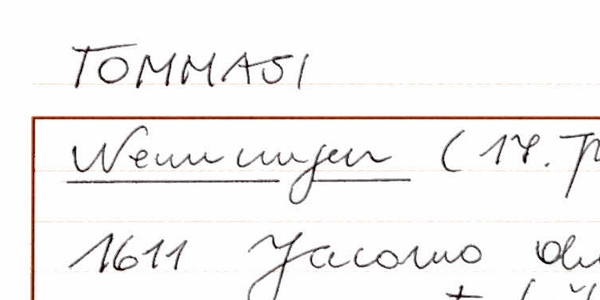 TOMMASI
Wemmingen (17.
1611 Jacomo